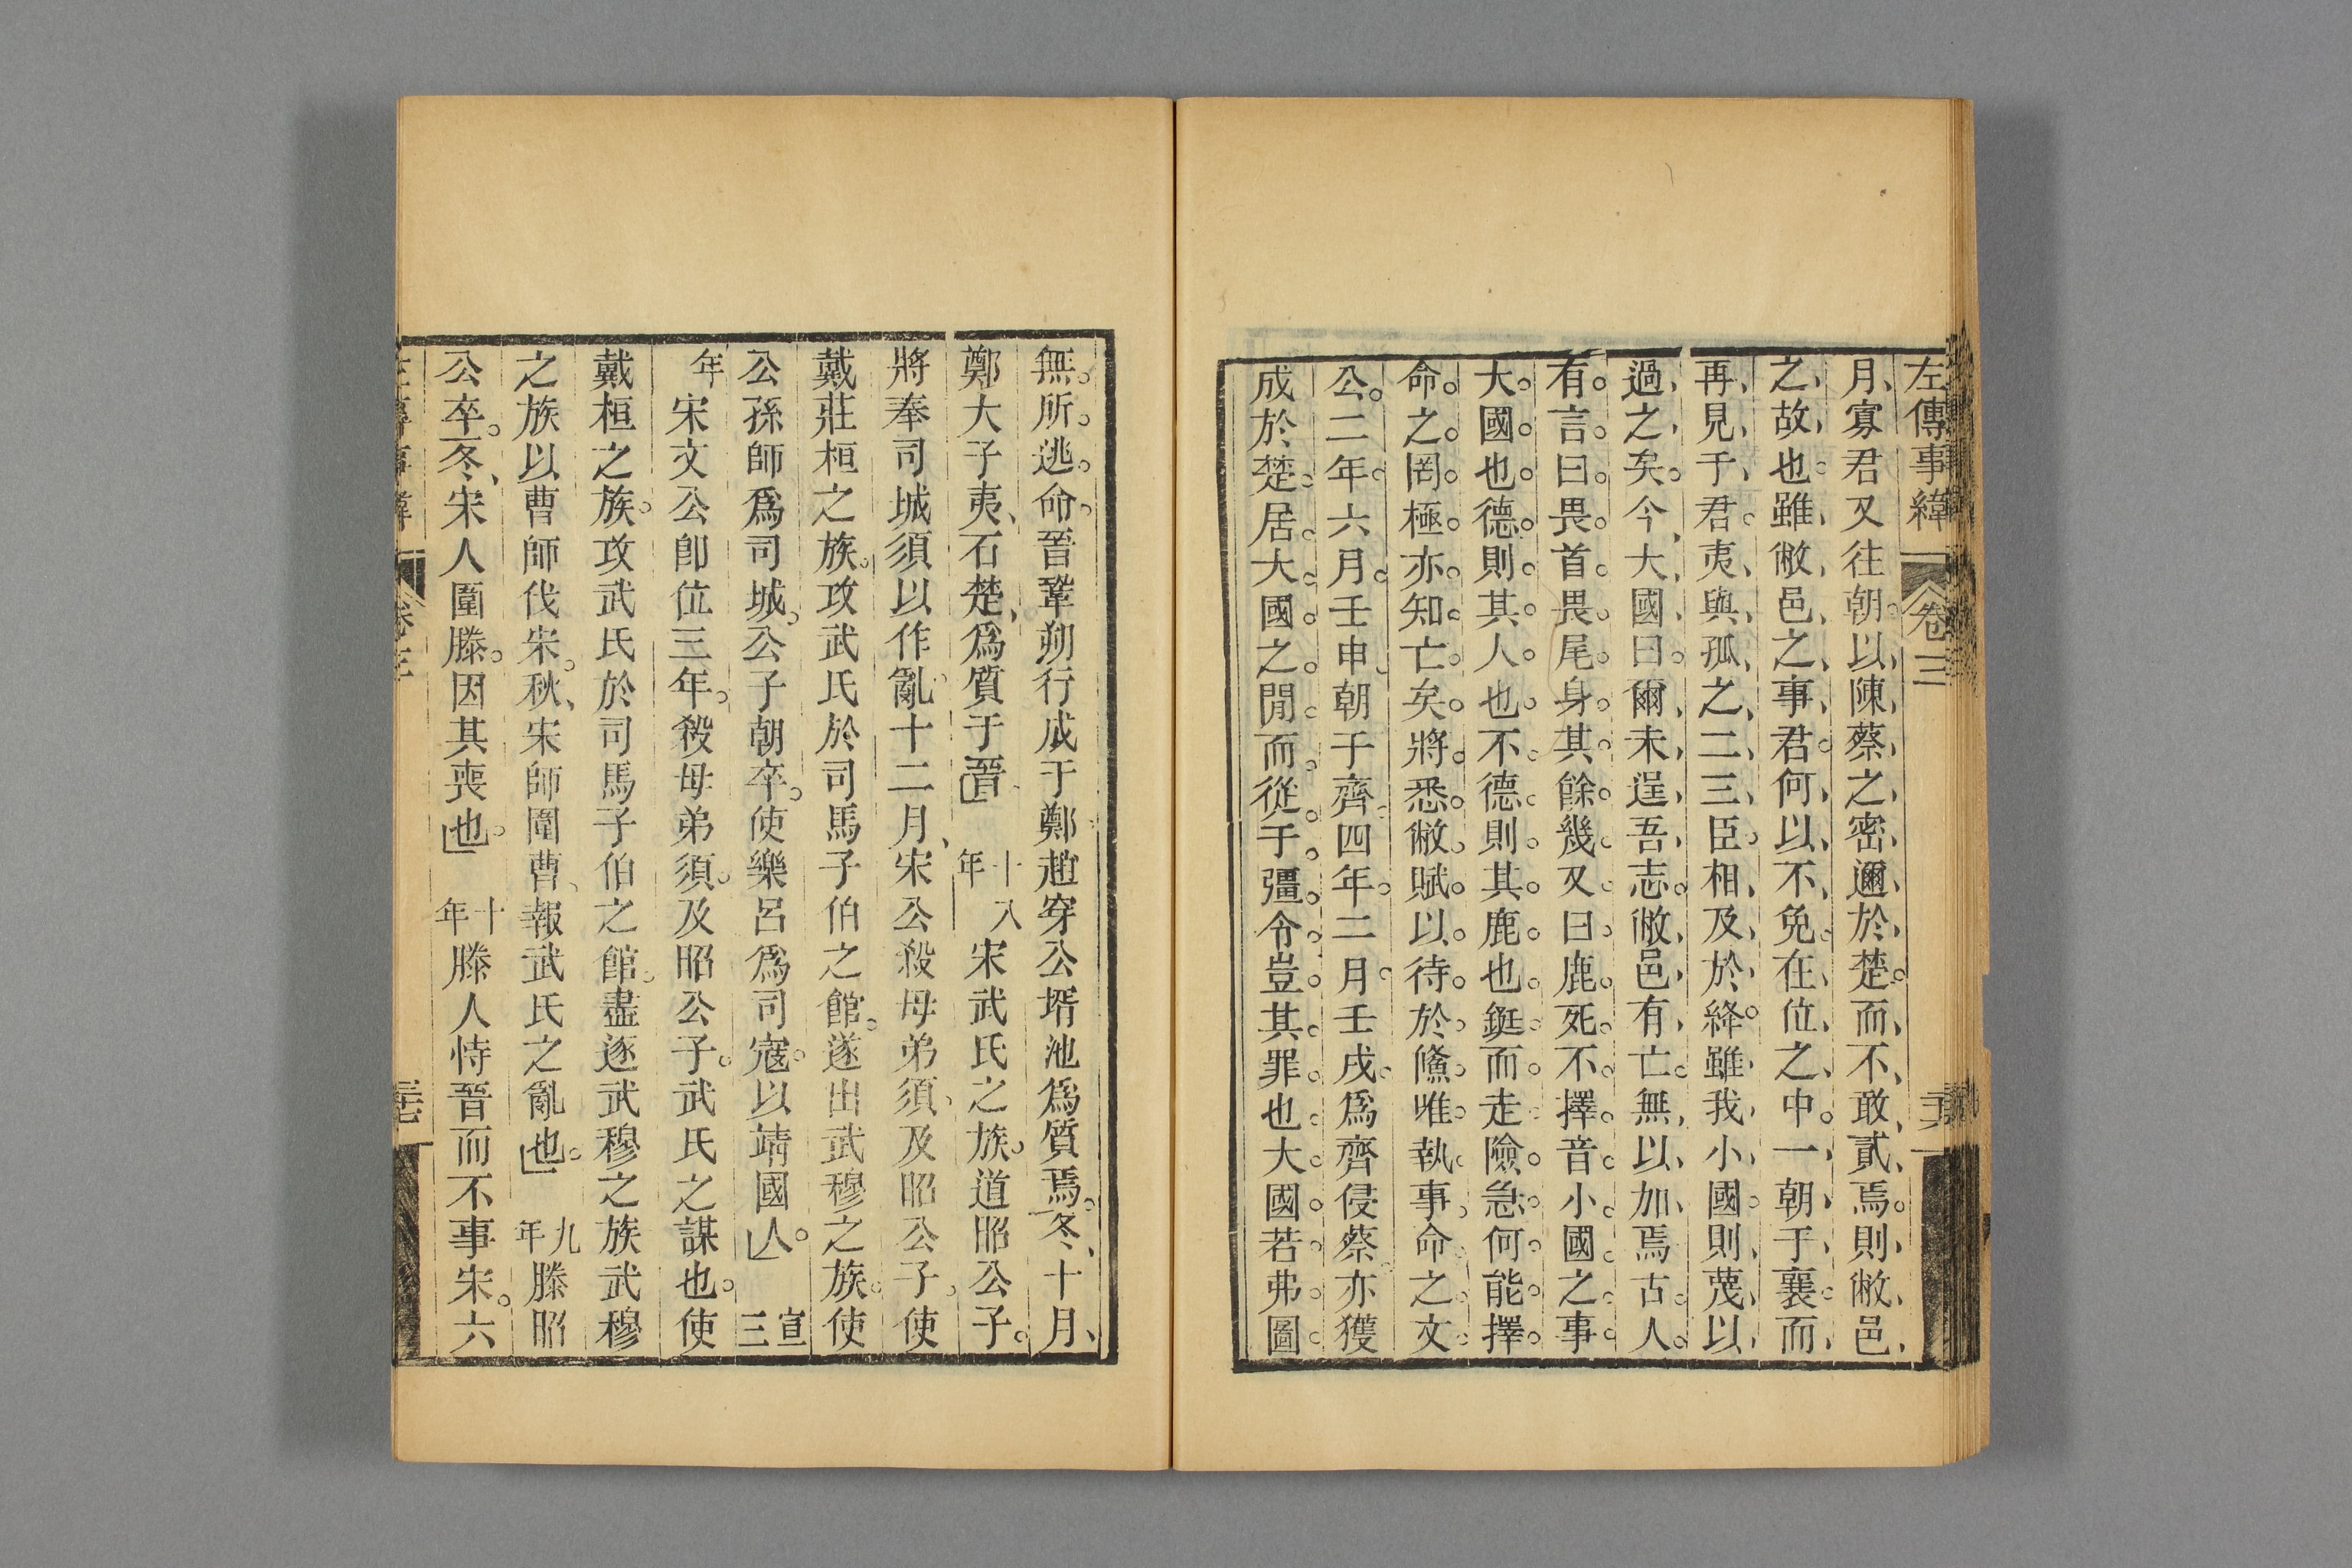 左傳事緯 卷三
月寡君又往朝以陳蔡之密邇於楚而不敢貳焉則敝邑
之故也雖敝邑之事君何以不免在位之中一朝于襄而
再見于君夷與孤之二三臣相及於絳雖我小國則蔑以
過之矣今大國曰爾未逞吾志敝邑有亡無以加焉古人
有言曰畏首畏尾身其餘幾又曰鹿死不擇音小國之事
大國也德則其人也不德則其鹿也鋌而走險急何能擇
命之罔極亦知亡矣將悉敝賦以待於鯈唯執事命之文
公二年六月壬申朝于齊四年二月壬戌爲齊侵蔡亦獲
成於楚居大國之閒而從于彊令豈其罪也大國若弗圖
無所逃命晉鞏朔行成于鄭趙穿公壻池爲質焉冬十月
鄭大子夷石楚爲質于晉 十八年 宋武氏之族道昭公子
將奉司城須以作亂十二月宋公殺母弟須及昭公子使
戴莊桓之族攻武氏於司馬子伯之館遂出武穆之族使
公孫師爲司城公子朝卒使樂呂爲司寇以靖國人 宣三
年 宋文公卽位三年殺母弟須及昭公子武氏之謀也使
戴桓之族攻武氏於司馬子伯之館盡逐武穆之族武穆
之族以曹師伐宋秋宋師圍曹報武氏之亂也 九年 滕昭
公卒冬宋人圍滕因其喪也 十年 滕人恃晉而不事宋六
左傳事緯 卷三